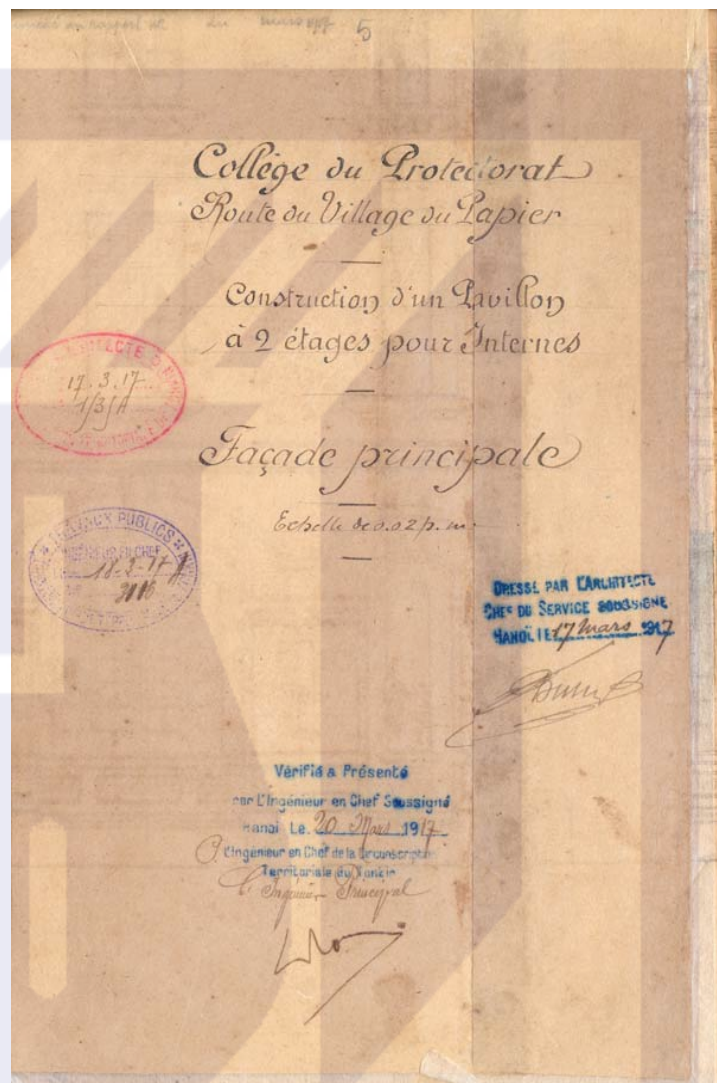 5
Collège du Protectorat
Route du Village du Papier
Construction d'un Pavillon
à 2 étages pour Internes
17.3.17
1/3/A
Façade principale
Echelle de 0.02 p. m.
TRAVAUX PUBLICS
18-3-17
DRESSÉ PAR L'ARCHITECTE
CHEF DU SERVICE SOUSSIGNÉ
HANOÏ LE 17 Mars 1917
Vérifié & Présenté
par L'Ingénieur en Chef Soussigné
Hanoi Le 20 Mars 1917
L'Ingénieur en Chef de la Circonscription
Territoriale du Tonkin
L'Ingénieur Principal